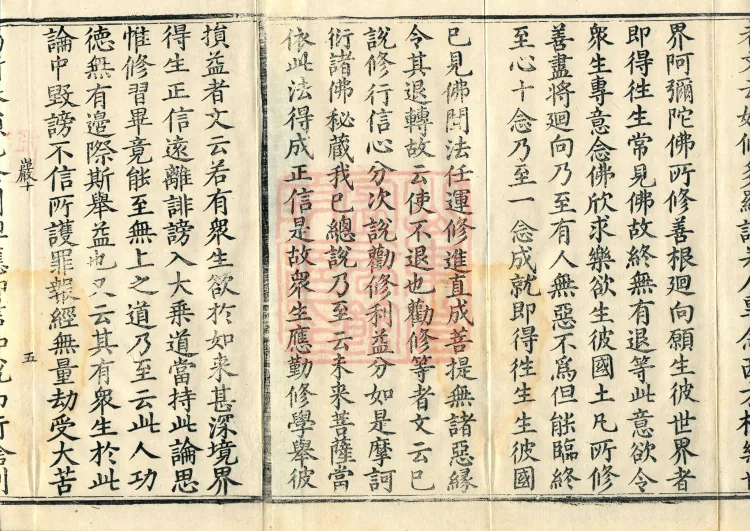 界阿彌陀佛所修善根迴向願生彼世界者
即得徃生常見佛故終無有退等此意欲令
衆生專意念佛欣求樂欲生彼國土凡所修
善盡將迴向乃至有人無惡不爲但能臨終
至心十念乃至一念成就即得徃生生彼國
已見佛聞法任運修進直成菩提無諸惡緣
令其退轉故云使不退也勸修等者文云已
說修行信心分次說勸修利益分如是摩訶
衍諸佛秘蔵我已總說乃至云未來菩薩當
依此法得成正信是故衆生應勤修學舉彼
損益者文云若有衆生欲於如來甚深境界
得生正信遠離誹謗入大乗道當持此論思
惟修習畢竟能至無上之道乃至云此人功
德無有邉際斯舉益也又云其有衆生於此
論中毀謗不信所護罪報經無量劫受大苦
巖十
五